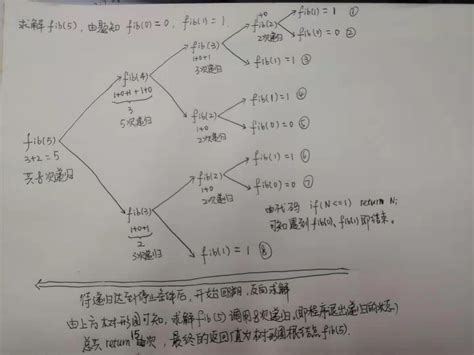 求解 fib(5), 由题知 fib(0) = 0, fib(1) = 1
fib(1) = 1 ①
+0
fib(2)
2次递归
fib(0) = 0 ②
fib(3)
1+0+1
fib(1) = 1 ③
fib(4)
1+0+1+1+0
3
5次递归
fib(1) = 1 ④
fib(2)
1+0
2次递归
fib(0) = 0 ⑤
fib(5)
3+2=5
共8次递归
fib(1) = 1 ⑥
fib(2)
1+0
2次递归
fib(0) = 0 ⑦
fib(3)
1+0+1
2
3次递归
fib(1) = 1 ⑧
由代码 if(N<=1) return N;
可知遇到fib(0), fib(1) 即结束。
待递归达到停止条件后, 开始回溯, 反向求解
由上方树形图可知, 求解fib(5)调用8次递归, (即程序退出递归的状态)
总共return 15次, 最终的返回值为树形图根结点fib(5).